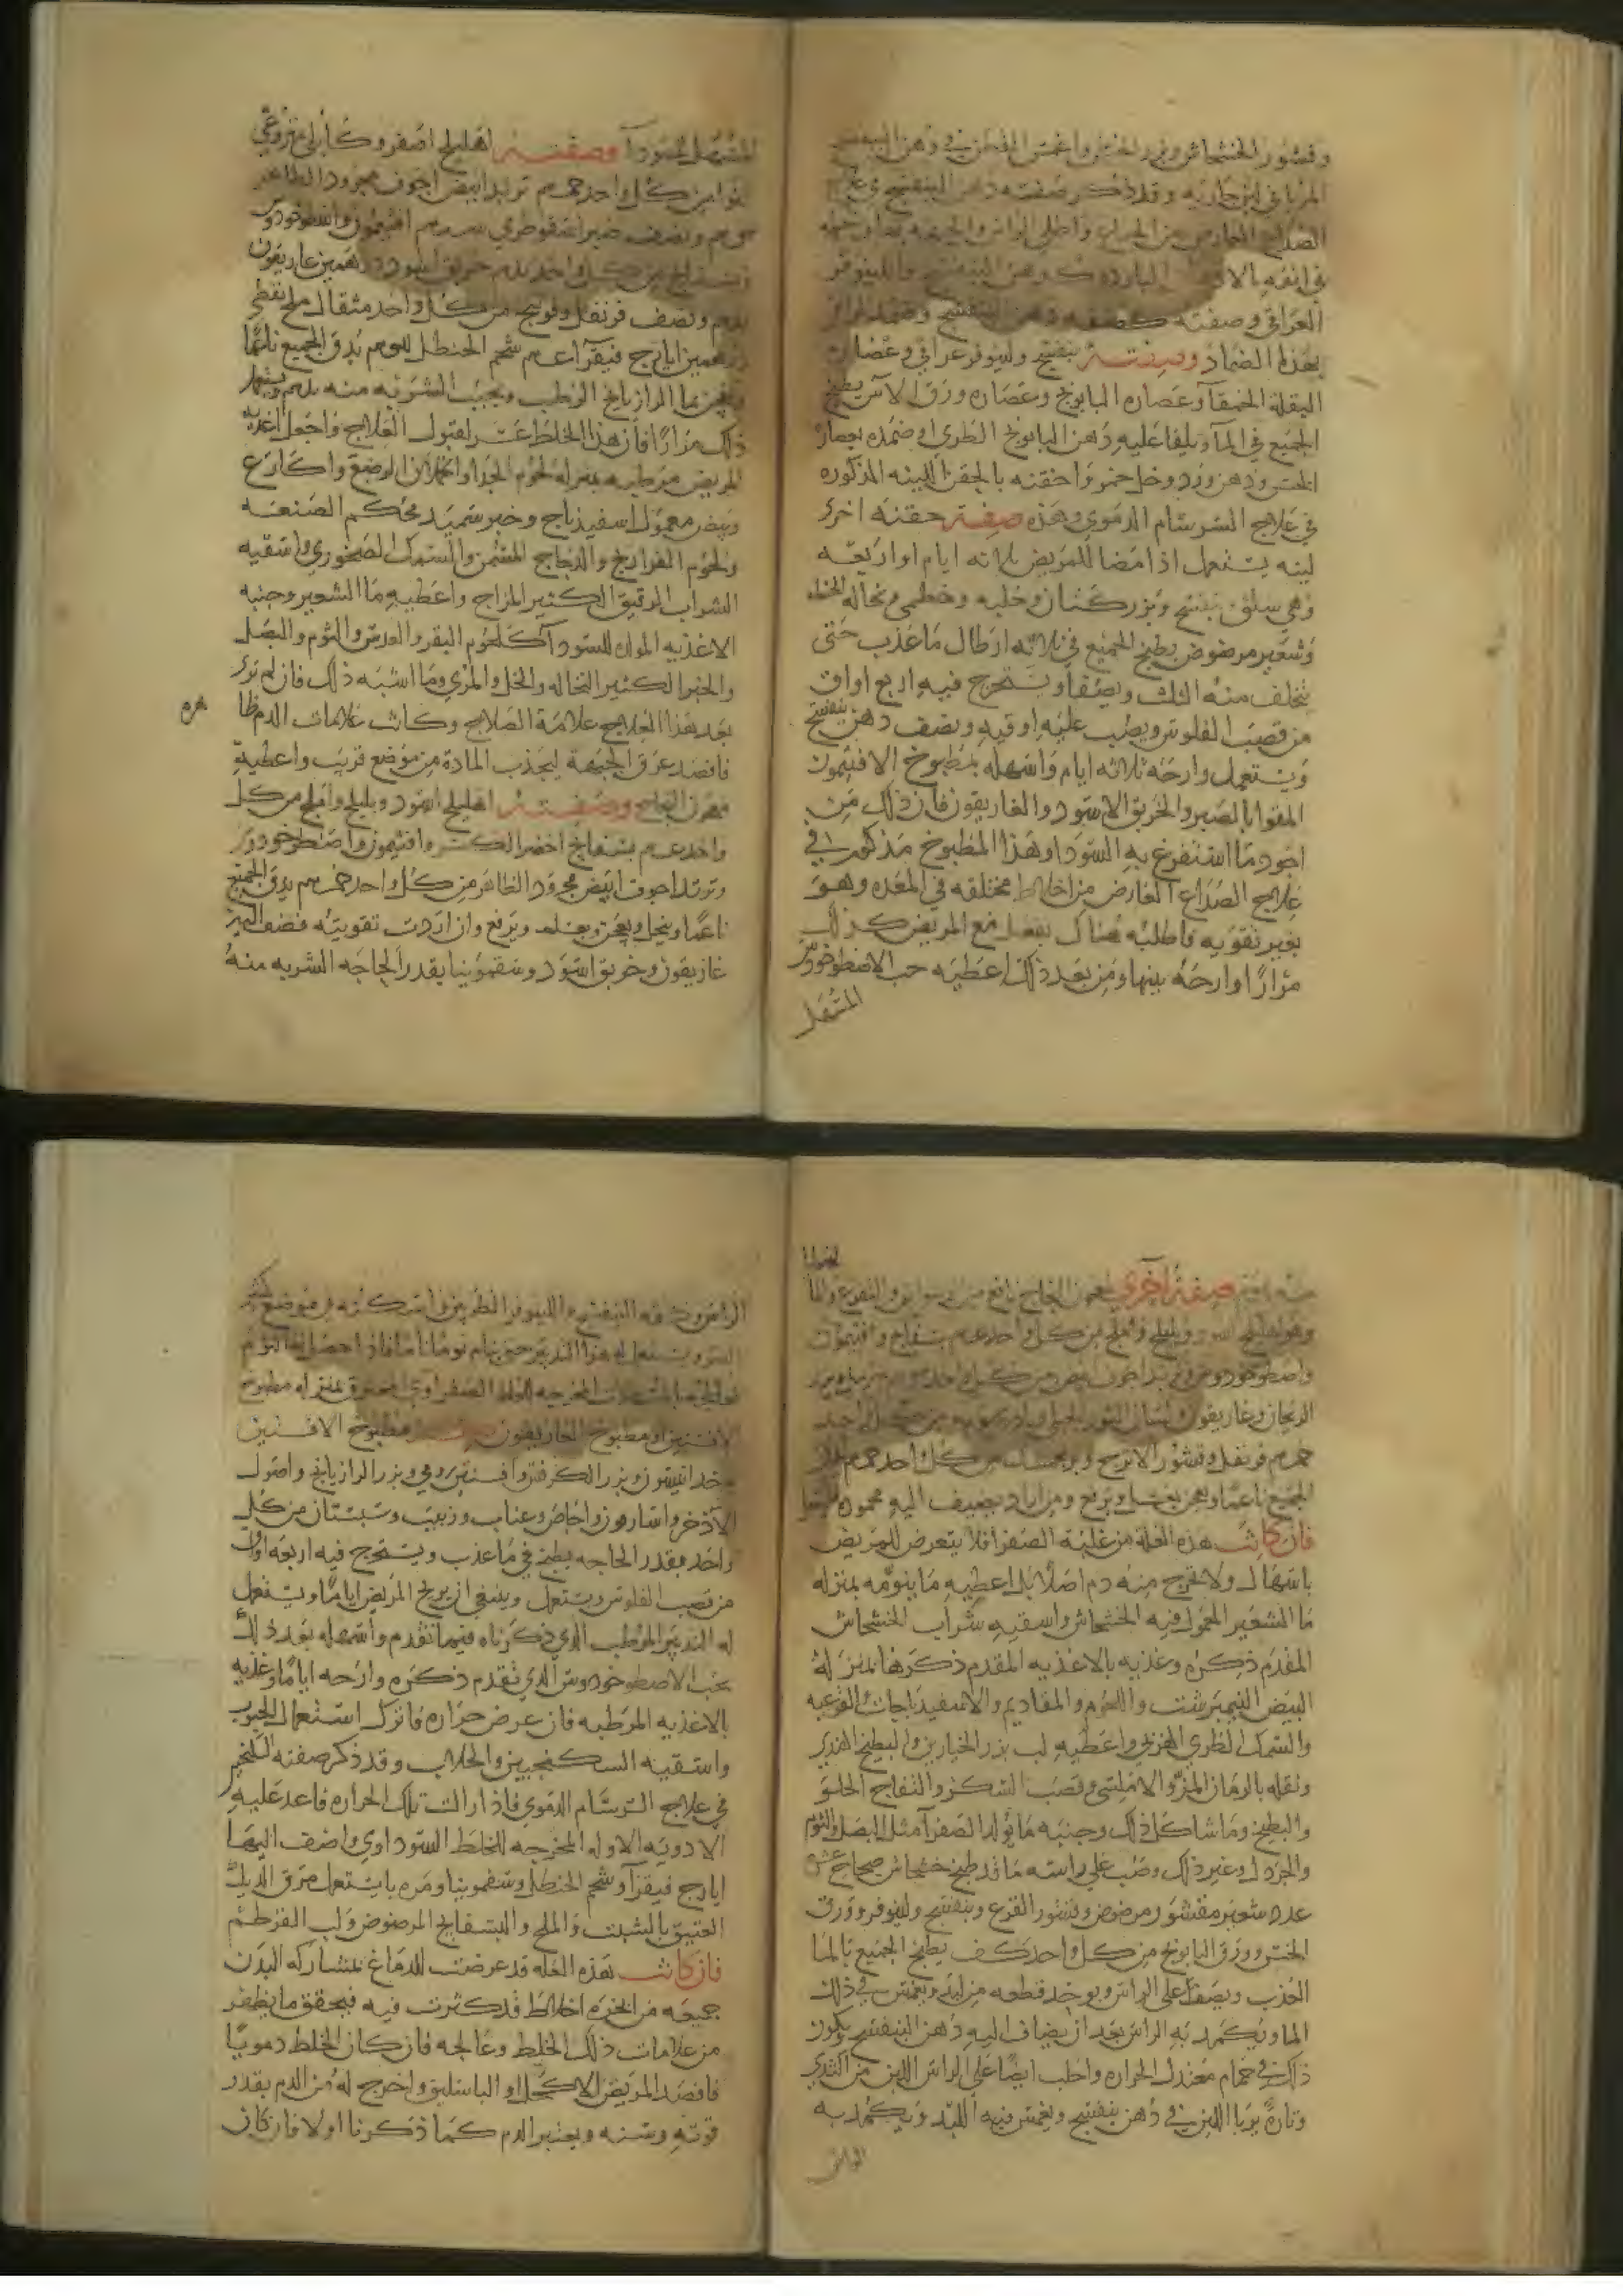 وقشور الخشخاش وبزر الخس واغمس القطن في دهن البنفسج
المربا في لبن جاريه وقد ذكر صفته دهن البنفسج في علاج
الصداع العارض من
في انفه البارده كدهن البنفسج واللينوفر
العراقي وصفته كصفة دهن البنفسج وضمد الراس
بهذا الضماد وصفته بنفسج ولينوفر عراقي وعصاره
البقلة الحمقآ وعصاره البابونج وعصاره ورق الاس يطبخ
الجميع في المآ ويلقا عليه دهن البابونج الطري او ضمده بعصارة
الخس ودهن ورد وخل خمر واحقنه بالحقن اللينه المذكوره
في علاج السرسام الدموي وهذه صفة حقنه اخرى
لينه يستعمل اذا مضا للمريض ثلاثه ايام او اربعه
وهي سلق بنفسج وبزر كتان وحلبه وخطمي ونخاله الحنطه
وشعير مرضوض يطبخ الجميع في ثلاثه ارطال ما عذب حتى
يتخلف منه الثلث ويصفا ويستخرج فيه اربع اواق
من قصب الفلوس ويصب عليه اوقيه ونصف دهن بنفسج
ويستعمل وارحه ثلاثه ايام واسهله بمطبوخ الافتيمون
المقوا بالصبر والخربق الاسود والغاريقون فان ذلك من
اجود ما استفرغ به السودا وهذا المطبوخ مذكور في
علاج الصداع العارض من اخلاط مختلفه في المعده وهو
بغير تقويه فاطلبه هناك يفعل مع المريض كذلك
مرارًا وارحه بينها ومن بعد ذلك اعطيه حب الاصطوخودوس
المسهل
المسهل للسودآ وصفته اهليلج اصفر وكابلي منزوعي
النوا من كل واحد تربد ابيض اجوف مجرود الظاهر
ونصف صبر اسقوطري افتيمون واسطوخودوس
وبسفايج من كل واحد خربق اسود درهمين غاريقون
درهم ونصف قرنفل وفوتنج من كل واحد مثقال ملح نفطي
درهمين ايارج فيقرا شحم الحنطل يدق الجميع ناعمًا
ويعجن بما الرازيانج الرطب ويحبب الشربه منه
ذلك مرارًا فان هذا الخلط عسر لقبول العلاج واجعل اغذيه
المريض مرطبه بمنزله لحوم الجدا والحملان الرضع واكارع
وبيض معمول اسفيذباج وخبز سميد محكم الصنعه
ولحوم الفراريج والدجاج المسمن والسمك الصخوري واسقيه
الشراب الرقيق الكثير المزاج واعطيه ما الشعير وجنبه
الاغذيه المولده للسودآ كلحوم البقر والعدس والثوم والبصل
والخبز الكثير النخاله والخل والمري وما اشبه ذلك فان لم ترى
بعد هذا العلاج علامة الصلاح وكانت علامات الدم ظا
هره
فافصد عرق الجبهة ليجذب المادة من موضع قريب واعطيه
معجون النجاح وصفته اهليلج اسود وبليلج واملج من كل
واحد بسفايج اخضر الكسر وافتيمون واصطوخودوس
وتربد اجوف ابيض مجرود الظاهر من كل واحد يدق الجميع
ناعمًا وينخل ويعجن بعسل ويرفع وان اردت تقويته فضف اليه
غاريقون وخربق اسود وسقمونيا بقدر الحاجه الشربه منه
صفة اخرى لمعجون النجاح نافع من الوسواس والفزع والما
لنخوليا
وهو اهليلج اسود وبليلج واملج من كل واحد بسفايج وافتيمون
واصطوخودوس وتربد اجوف ابيض من كل واحد
الريحان وغاريقون ولسان الثور من كل واحد
قرنفل وقشور الاترج من كل واحد
الجميع ناعمًا ويعجن بعسل ويرفع ومن اراد يضيف اليه محموده
فان كانت هذه العلة من غلبة الصفرا فلا يتعرض للمريض
باسهال ولا تخرج منه دم اصلا بل اعطيه ما ينومه بمنزله
ما الشعير المعمول فيه الخشخاش واسقيه شراب الخشخاش
المقدم ذكره وغذيه بالاغذيه المقدم ذكرها بمنزلة
البيض النيمبرشت واللحوم والمقاديم والاسفيذباجات القرعيه
والسمك الطري واعطيه لب بزر الخيارين والبطيخ الهندي
ونقله بالرمان المز والاملسي وقصب السكر والتفاح الحلو
والبطيخ وما شاكل ذلك وجنبه ما يولد الصفرآ مثل البصل والثوم
والخردل وغير ذلك وصب على راسه ما قد طبخ خشخاش صحاح
عدد شعير مقشور مرضوض وقشور القرع وبنفسج ولينوفر وورق
الخس وورق البابونج من كل واحد كف يطبخ الجميع بالما
العذب ويصفا على الراس ويوخذ قطعه من لبد ويغمس في ذلك
الما ويكمد به الراس بعد ان يضاف اليه دهن البنفسج ويكون
ذلك في حمام معتدل الحراره واحلب ايضًا على الراس اللبن من الثدي
وتارةً يربا اللبن في دهن بنفسج ويغمس فيه اللبد ويكمد به
الراس
الراس
حتى ينام نومًا تامًا فاذا حصل له النوم
المخرجه للخلط الصفراوي بمنزله مطبوخ
الافسنتين ومطبوخ الغاريقون صفة مطبوخ الافسنتين
يوخذ انيسون وبزر الكرفس وافسنتين رومي وبزر الرازيانج واصول
الاذخر واسارون واجاص وعناب وزبيب وسبستان من كل
واحد بقدر الحاجه يطبخ في ما عذب ويستخرج فيه اربعه اواق
من قصب الفلوس ويستعمل وينبغي ان يريح المريض ايامًا ويستعمل
له التدبير المرطب الذي ذكرناه فيما تقدم واسهله بعد ذلك
بحب الاصطوخودوس الذي تقدم ذكره وارحه ايامًا وغذيه
بالاغذيه المرطبه فان عرض حراره فاترك استعمال الحبوب
واسقيه السكنجبين والجلاب وقد ذكر صفته
في علاج السرسام الدموي فاذا زالت تلك الحراره فاعد عليه
الادويه الاوله المخرجه للخلط السوداوي واضف اليها
ايارج فيقرآ وشحم الحنطل وسقمونيا ومره يستعمل مرق الديك
العتيق بالشبت والملح والبسفايج المرضوض ولب القرطم
فان كانت هذه العله قد عرضت للدماغ بمشاركه البدن
جميعه من ابخره اخلاط قد كثرت فيه فيحقق ما يظهر
من علامات ذلك الخلط وعالجه فان كان الخلط دمويًا
فافصد المريض الاكحل او الباسليق واخرج له من الدم بقدر
قوته وسنه ويعتبر الدم كما ذكرنا اولا فان كان